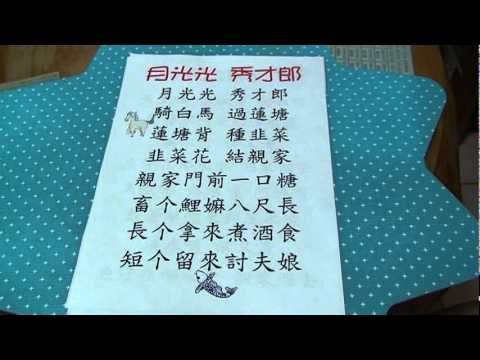 月光光 秀才郎
月光光 秀才郎
騎白馬 過蓮塘
蓮塘背 種韭菜
韭菜花 結親家
親家門前一口糖
畜个鯉嫲八尺長
長个拿來煮酒食
短个留來討夫娘